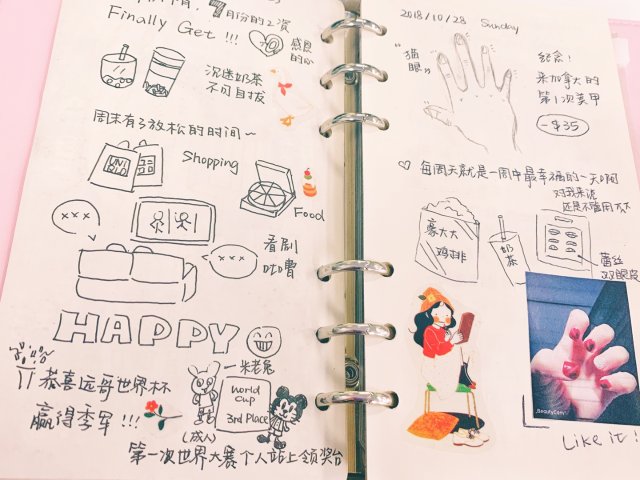 7月份的工资
Finally Get !!!
感恩
的心
沉迷奶茶
不可自拔
周末有了放松的时间~
UNI
QLO
Shopping
Food
看剧
吐曹
HAPPY
恭喜远哥世界杯
赢得季军!!!
一米老鼠
World
Cup
3rd Place
(成人)
第一次世界大赛个人站上领奖台
2018/10/28 Sunday
“猫
眼”
纪念!
来加拿大的
第1次美甲
-$35
♡ 每周天就是一周中最幸福的一天啊
对我来说
还是不够用
豪大大
鸡排
奶
茶
蕾丝
双眼皮
Like it!